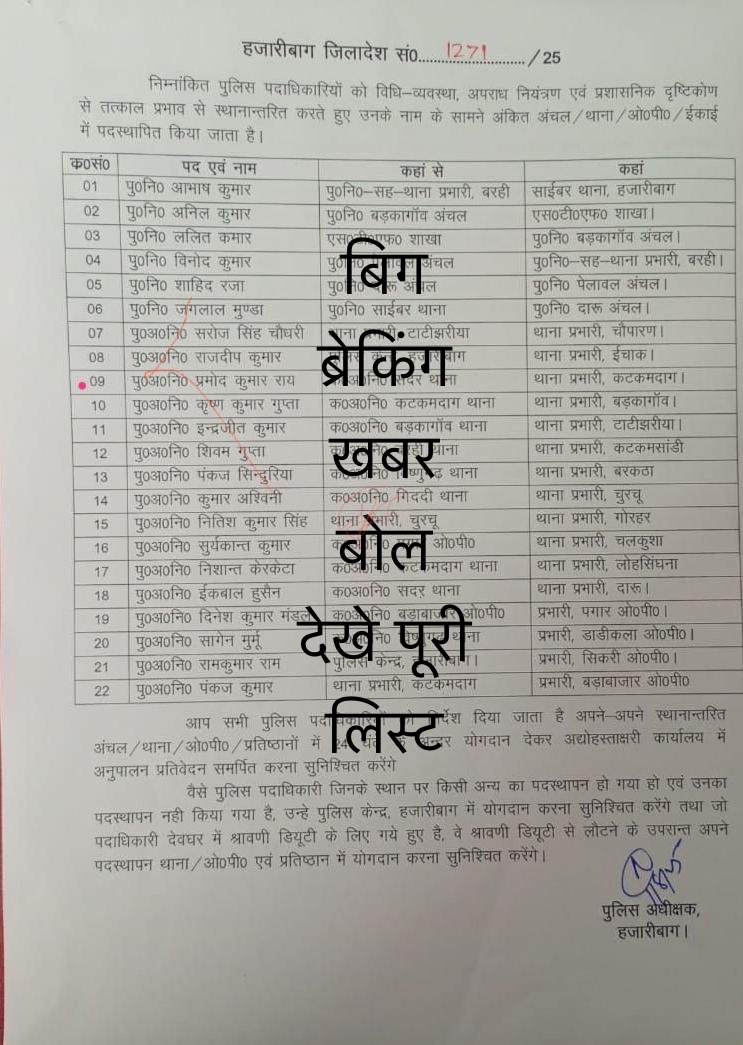 हजारीबाग जिलादेश सं0.....1271...../25
निम्नांकित पुलिस पदाधिकारियों को विधि–व्यवस्था, अपराध नियंत्रण एवं प्रशासनिक दृष्टिकोण
से तत्काल प्रभाव से स्थानान्तरित करते हुए उनके नाम के सामने अंकित अंचल/थाना/ओ0पी0/ईकाई
में पदस्थापित किया जाता है।
क0सं0 पद एवं नाम कहां से कहां
01 पु0नि0 आभाष कुमार पु0नि0–सह–थाना प्रभारी, बरही साईबर थाना, हजारीबाग
02 पु0नि0 अनिल कुमार पु0नि0 बड़कागॉव अंचल एस0टी0एफ0 शाखा।
03 पु0नि0 ललित कमार एस0टी0एफ0 शाखा पु0नि0 बड़कागॉव अंचल।
04 पु0नि0 विनोद कुमार पु0नि0 पेलावल अंचल पु0नि0–सह–थाना प्रभारी, बरही।
05 पु0नि0 शाहिद रजा पु0नि0 दारू अंचल पु0नि0 पेलावल अंचल।
06 पु0नि0 जंगलाल मुण्डा पु0नि0 साईबर थाना पु0नि0 दारू अंचल।
07 पु0अ0नि0 सरोज सिंह चौधरी थाना प्रभारी, टाटीझरीया थाना प्रभारी, चौपारण।
08 पु0अ0नि0 राजदीप कुमार पुलिस केन्द्र, हजारीबाग थाना प्रभारी, ईचाक।
09 पु0अ0नि0 प्रमोद कुमार राय क0अ0नि0 सदर थाना थाना प्रभारी, कटकमदाग।
10 पु0अ0नि0 कृष्ण कुमार गुप्ता क0अ0नि0 कटकमदाग थाना थाना प्रभारी, बड़कागॉव।
11 पु0अ0नि0 इन्द्रजीत कुमार क0अ0नि0 बड़कागॉव थाना थाना प्रभारी, टाटीझरीया।
12 पु0अ0नि0 शिवम गुप्ता क0अ0नि0 बरही थाना थाना प्रभारी, कटकमसांडी
13 पु0अ0नि0 पंकज सिन्दुरिया क0अ0नि0 विष्णुगढ़ थाना थाना प्रभारी, बरकठा
14 पु0अ0नि0 कुमार अश्विनी क0अ0नि0 गिददी थाना थाना प्रभारी, चुरचू
15 पु0अ0नि0 नितिश कुमार सिंह थाना प्रभारी, चुरचू थाना प्रभारी, गोरहर
16 पु0अ0नि0 सुर्यकान्त कुमार क0अ0नि0 ओ0पी0 थाना प्रभारी, चलकुशा
17 पु0अ0नि0 निशान्त केरकेटा क0अ0नि0 कटकमदाग थाना थाना प्रभारी, लोहसिंघना
18 पु0अ0नि0 ईकबाल हुसैन क0अ0नि0 सदर थाना थाना प्रभारी, दारू।
19 पु0अ0नि0 दिनेश कुमार मंडल क0अ0नि0 बड़ाबाजार ओ0पी0 प्रभारी, पगार ओ0पी0।
20 पु0अ0नि0 सागेन मुर्मू क0अ0नि0 विष्णुगढ़ थाना प्रभारी, डाडीकला ओ0पी0।
21 पु0अ0नि0 रामकुमार राम पुलिस केन्द्र, हजारीबाग। प्रभारी, सिकरी ओ0पी0।
22 पु0अ0नि0 पंकज कुमार थाना प्रभारी, कटकमदाग प्रभारी, बड़ाबाजार ओ0पी0
आप सभी पुलिस पदाधिकारियों को निर्देश दिया जाता है अपने–अपने स्थानान्तरित
अंचल/थाना/ओ0पी0/प्रतिष्ठानों में 24 घंटे के अन्दर योगदान देकर अद्योहस्ताक्षरी कार्यालय में
अनुपालन प्रतिवेदन समर्पित करना सुनिश्चित करेंगे
वैसे पुलिस पदाधिकारी जिनके स्थान पर किसी अन्य का पदस्थापन हो गया हो एवं उनका
पदस्थापन नही किया गया है, उन्हे पुलिस केन्द्र, हजारीबाग में योगदान करना सुनिश्चित करेंगे तथा जो
पदाधिकारी देवघर में श्रावणी डियूटी के लिए गये हुए है, वे श्रावणी डियूटी से लौटने के उपरान्त अपने
पदस्थापन थाना/ओ0पी0 एवं प्रतिष्ठान में योगदान करना सुनिश्चित करेंगे।
पुलिस अधीक्षक,
हजारीबाग।
बिग
ब्रेकिंग
खबर
बोल
देखे पूरी
लिस्ट